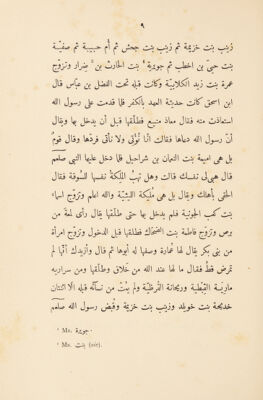 ٩
زينب بنت خزيمة ثم زينب بنت جحش ثم أم حبيبة ثم صفيّة
بنت حيىّ بن اخطب ثم جويرية¹ بنت الحارث بن² ضِرار وتزوّج
عمرة بنت زيد الكلابيّة وكانت قبله تحت الفضل بن عباس قال
ابن اسحق كانت حديثة العهد بالكفر فلما قدمت على رسول الله
استعاذت منه فقال معاذ منيع فطلّقها قبل أن يدخل بها ويقال
انّ رسول الله دعاها فقالت انّا نُؤْتَى ولا نأتى فردّها وقال قومٌ
بل هى اميمة بنت النعمان بن شراحيل فلمّا دخل عليها النبى صلعم
قال هبى لى نفسك قالت وهل تهبُ المَلِكَة نفسها للسوقة فقال
الحقى بأهلك ويقال بل هى مُلَيكة الليثيّة والله اعلم وتزوّج اسماء
بنت كعب الجونية فلم يدخل بها حتى طلّقها يقال رأى لمعة من
برص وتزوّج فاطمة بنت الضحّاك فطلّقها قبل الدخول وتزوّج امرأة
من بنى بكر يقال لها عُمارة وصفها له أبوها ثم قال وأزيدك أنّها لم
تمرض قطّ فقال ما لها عند الله من خَلاق وطلّقها ومن سراريه
مارِية القبطية وريحانة القُرظيّة ولم يمُتْ من نسائه قبله الّا اثنتان
خديجة بنت خويلد وزينب بنت خزيمة وقُبض رسول الله صلعم
¹ Ms. جويرة.
² Ms. بنت (sic).